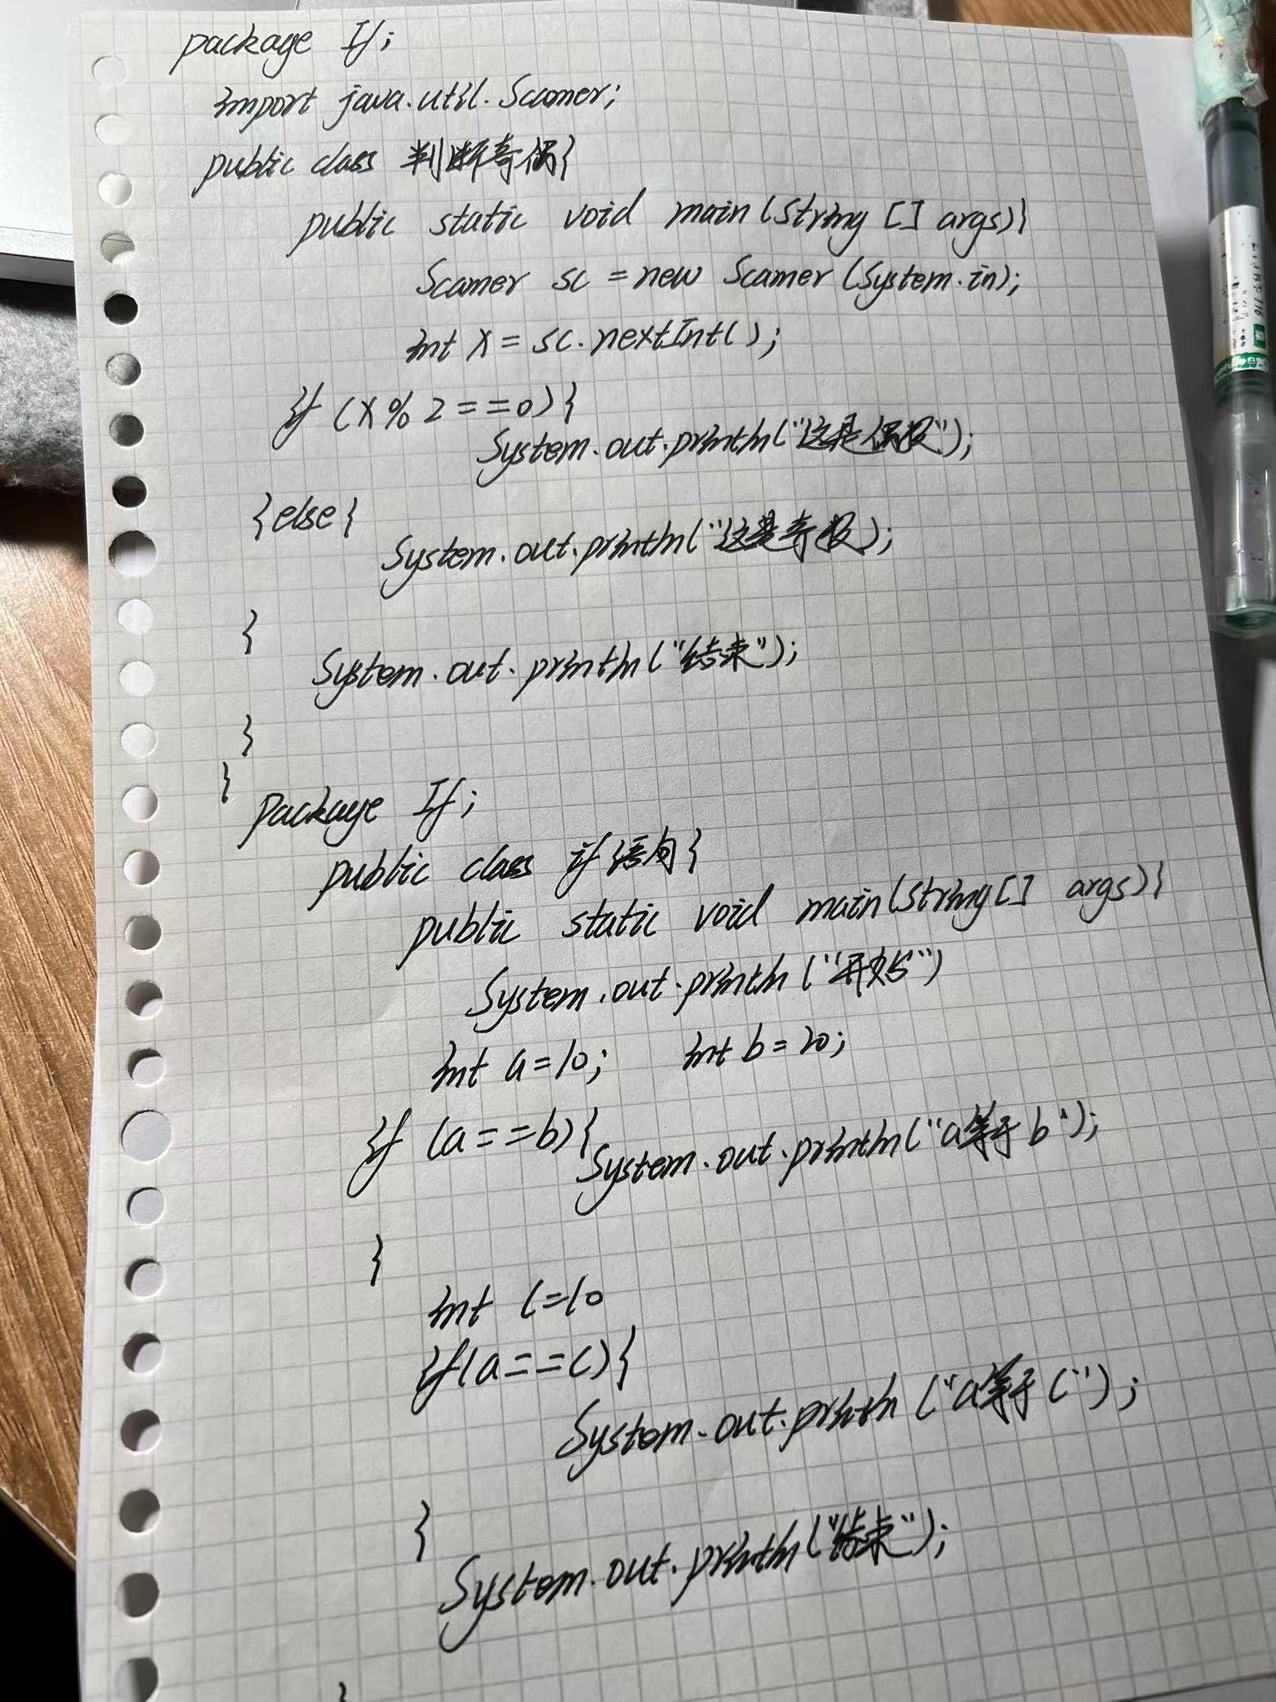 package If;
import java.util.Scanner;
public class 判断奇偶{
public static void main(String [] args){
Scanner sc = new Scanner (System.in);
int x = sc.nextInt();
if (x % 2 == 0) {
System.out.println("这是偶数");
}else{
System.out.println("这是奇数);
}
System.out.println("结束");
}
}
package If;
public class if语句{
public static void main(String[] args){
System.out.println("开始")
int a=10; int b=20;
if (a==b){
System.out.println("a等于b");
}
int c=10
if(a==c){
System.out.println("a等于c");
}
System.out.println("结束");
}